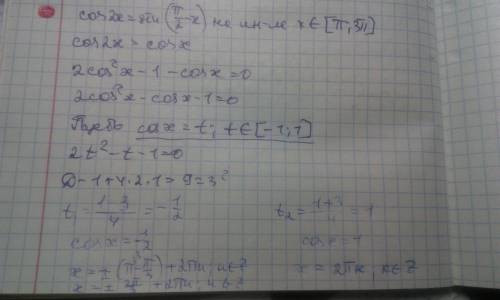 cos2x = sin(π/2 - x) на ин-ле x∈[π;3π]
cos2x = cosx
2cos²x - 1 - cosx = 0
2cos²x - cosx - 1 = 0
Пусть cosx = t; t∈[-1;1]
2t² - t - 1 = 0
D = 1 + 4·2·1 = 9 = 3²
t₁ = (1-3)/4 = -1/2    t₂ = (1+3)/4 = 1
cosx = -1/2    cosx = 1
x = ±(π - π/3) + 2πn; n∈Z    x = 2πk, k∈Z
x = ± 2π/3 + 2πn; n∈Z